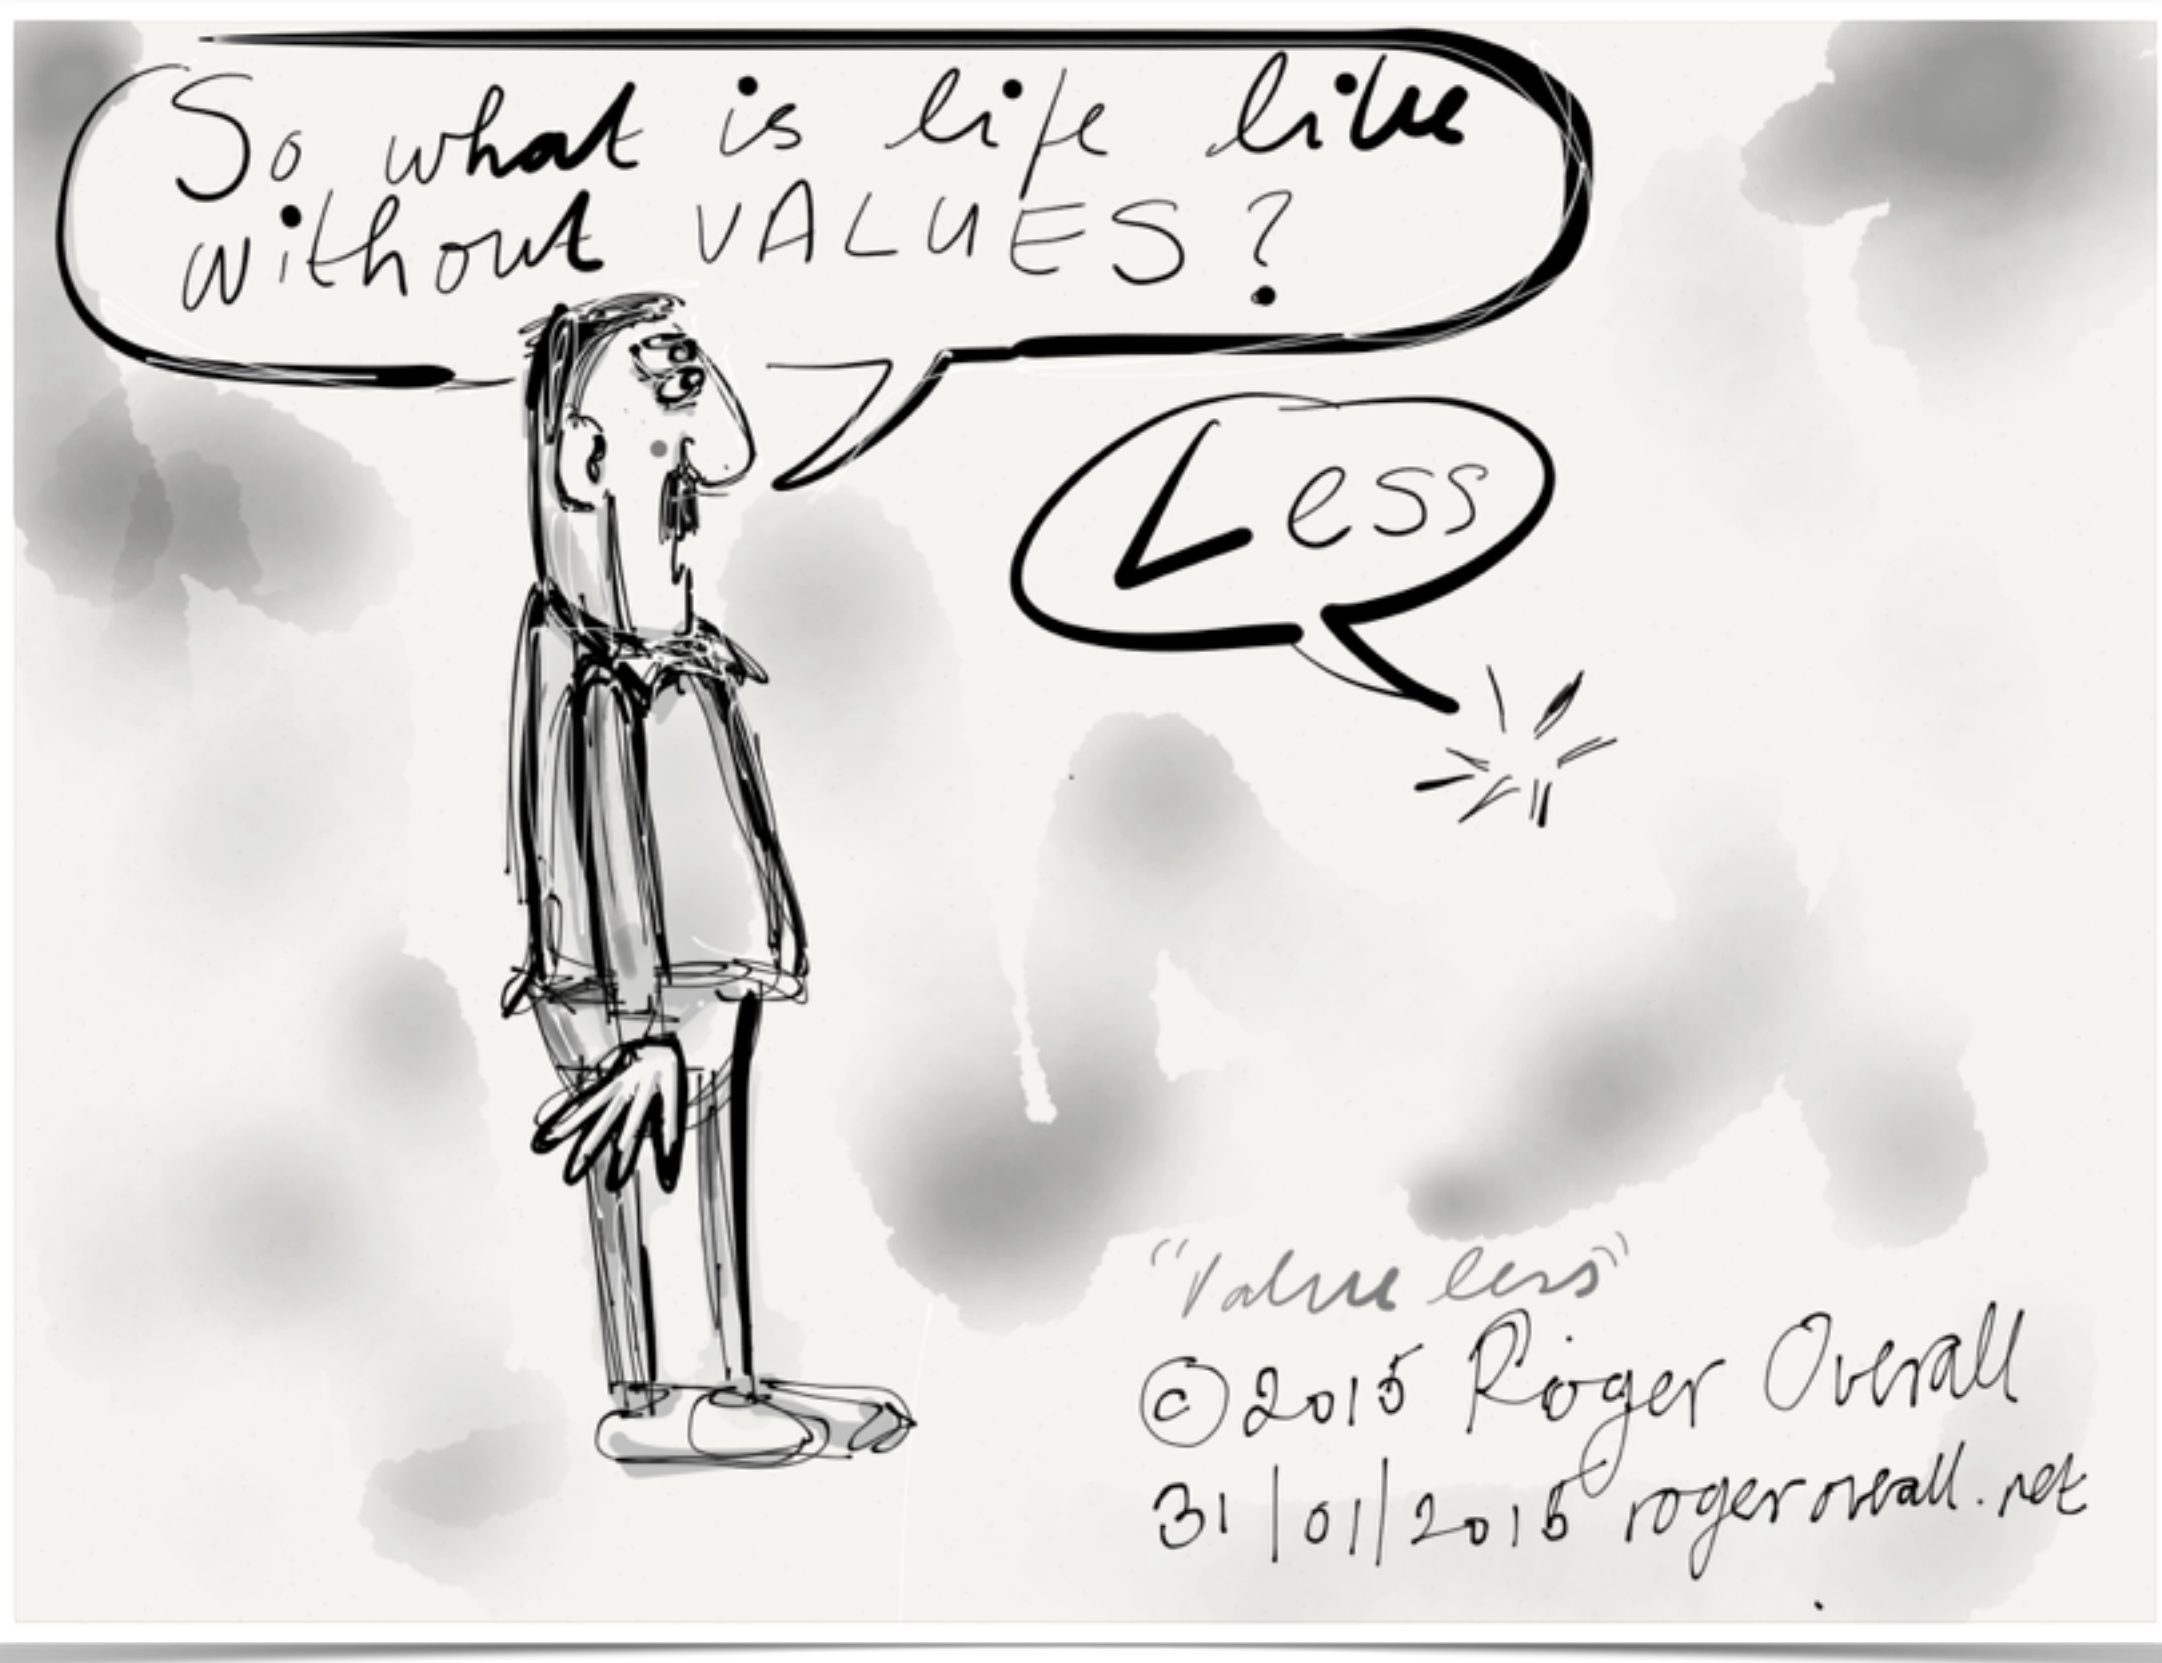 So what is life like
without VALUES?
Less
"Value less"
© 2015 Roger Overall
31/01/2015 rogeroverall.net